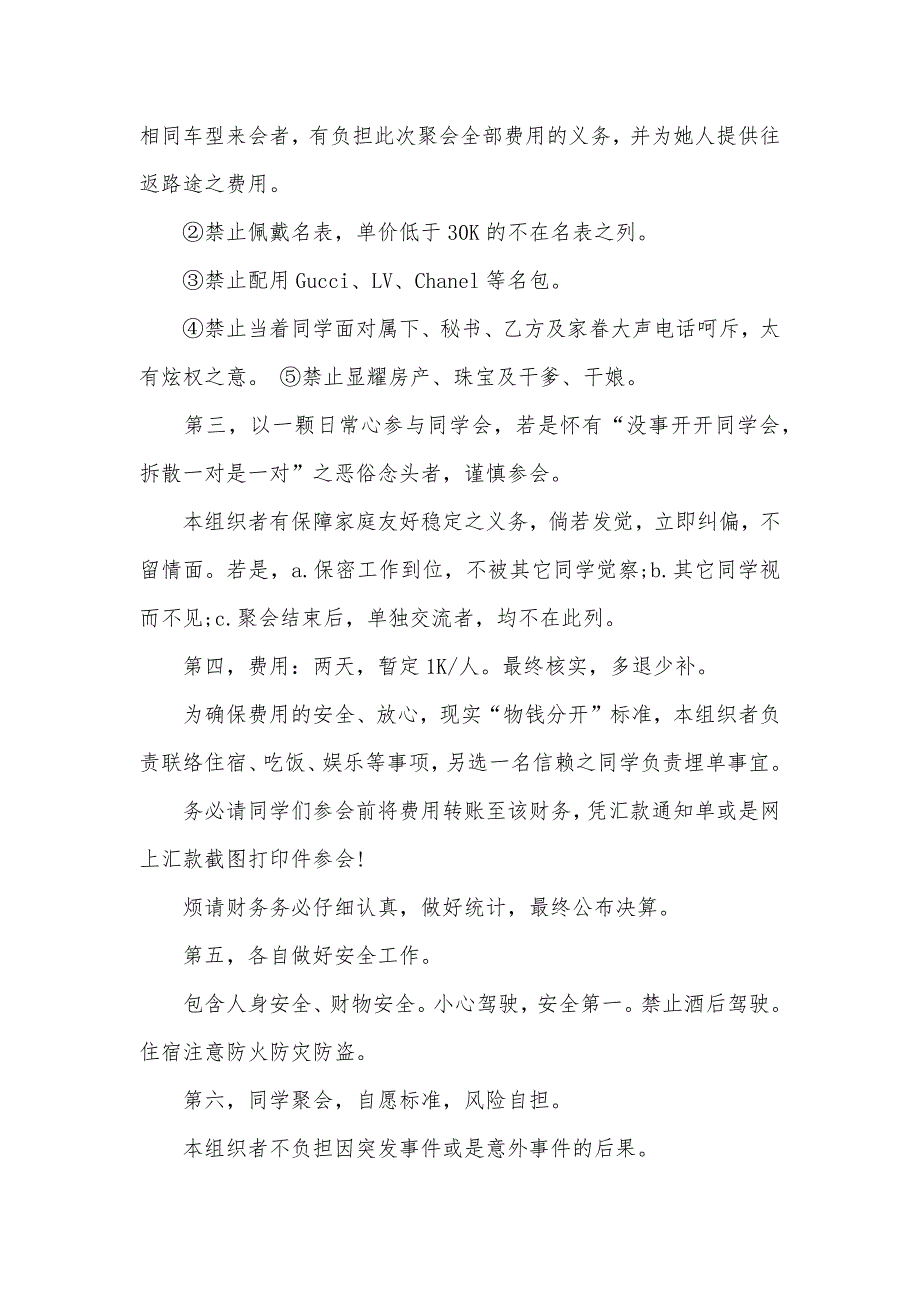 相同车型来会者，有负担此次聚会全部费用的义务，并为她人提供往
返路途之费用。
②禁止佩戴名表，单价低于 30K 的不在名表之列。
③禁止配用 Gucci、LV、Chanel 等名包。
④禁止当着同学面对属下、秘书、乙方及家眷大声电话呵斥，太
有炫权之意。 ⑤禁止显耀房产、珠宝及干爹、干娘。
第三，以一颗日常心参与同学会，若是怀有“没事开开同学会，
拆散一对是一对”之恶俗念头者，谨慎参会。
本组织者有保障家庭友好稳定之义务，倘若发觉，立即纠偏，不
留情面。若是，a.保密工作到位，不被其它同学觉察;b.其它同学视
而不见;c.聚会结束后，单独交流者，均不在此列。
第四，费用：两天，暂定 1K/人。最终核实，多退少补。
为确保费用的安全、放心，现实“物钱分开”标准，本组织者负
责联络住宿、吃饭、娱乐等事项，另选一名信赖之同学负责埋单事宜。
务必请同学们参会前将费用转账至该财务，凭汇款通知单或是网
上汇款截图打印件参会!
烦请财务务必仔细认真，做好统计，最终公布决算。
第五，各自做好安全工作。
包含人身安全、财物安全。小心驾驶，安全第一。禁止酒后驾驶。
住宿注意防火防灾防盗。
第六，同学聚会，自愿标准，风险自担。
本组织者不负担因突发事件或是意外事件的后果。